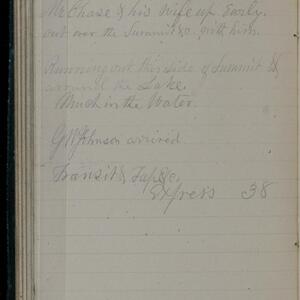 Mr Chase & his wife up Early.
out over the Summit &c. with him.
Running out this side of Summit &
around the Lake.
Much in the Water.
G W Johnson arrived.
Transit &
Express 38